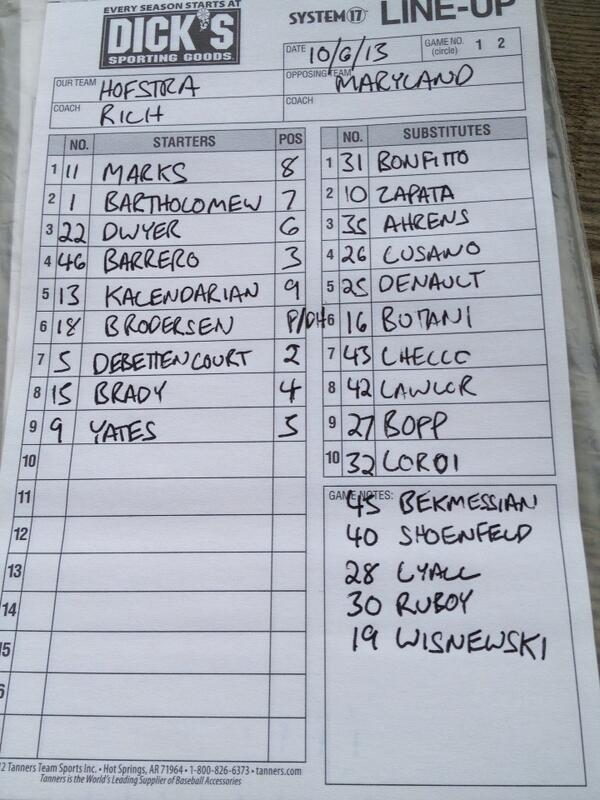 EVERY SEASON STARTS AT
DICK'S
SPORTING GOODS.
SYSTEM 17 LINE-UP
DATE 10/6/13
GAME NO. (circle) 1 2
OUR TEAM HOFSTRA
OPPOSING TEAM MARYLAND
COACH RICH
COACH
NO. STARTERS POS
1 11 MARKS 8
2 1 BARTHOLOMEW 7
3 22 DWYER 6
4 46 BARRERO 3
5 13 KALENDARIAN 9
6 18 BRODERSEN P/DH
7 5 DEBETTENCOURT 2
8 15 BRADY 4
9 9 YATES 5
10
11
12
13
14
15
6
NO. SUBSTITUTES
1 31 BONFITTO
2 10 ZAPATA
3 35 AHRENS
4 26 CUSANO
5 25 DENAULT
6 16 BUTANI
7 43 CHECCO
8 42 LAWLOR
9 27 BOPP
10 32 LORDI
GAME NOTES:
45 BEKMESSIAN
40 SHOENFELD
28 LYALL
30 RUBOY
19 WISNEWSKI
2 Tanners Team Sports Inc. • Hot Springs, AR 71964 • 1-800-826-6373 • tanners.com
Tanners is the World's Leading Supplier of Baseball Accessories